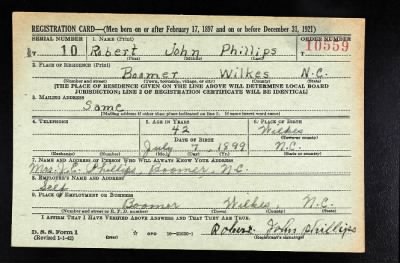 REGISTRATION CARD—(Men born on or after February 17, 1897 and on or before December 31, 1921)
SERIAL NUMBER 1. NAME (Print) ORDER NUMBER
V 10 Robert John Phillips 10559
(First) (Middle) (Last)
2. PLACE OF RESIDENCE (Print)
Boomer Wilkes N.C.
(Number and street) (Town, township, village, or city) (County) (State)
[THE PLACE OF RESIDENCE GIVEN ON THE LINE ABOVE WILL DETERMINE LOCAL BOARD
JURISDICTION; LINE 2 OF REGISTRATION CERTIFICATE WILL BE IDENTICAL]
3. MAILING ADDRESS
Same
[Mailing address if other than place indicated on line 2. If same insert word same]
4. TELEPHONE 5. AGE IN YEARS 6. PLACE OF BIRTH
42 Wilkes
DATE OF BIRTH (Town or county)
July 7 1899 N.C.
(Exchange) (Number) (Mo.) (Day) (Yr.) (State or country)
7. NAME AND ADDRESS OF PERSON WHO WILL ALWAYS KNOW YOUR ADDRESS
Phillips, Boomer, N.C.
8. EMPLOYER'S NAME AND ADDRESS
Self
9. PLACE OF EMPLOYMENT OR BUSINESS
Boomer Wilkes, N.C.
(Number and street or R. F. D. number) (Town) (County) (State)
I AFFIRM THAT I HAVE VERIFIED ABOVE ANSWERS AND THAT THEY ARE TRUE.
D. S. S. Form 1
(Revised 1-1-42) GPO Robert John Phillips
(Registrant's signature)